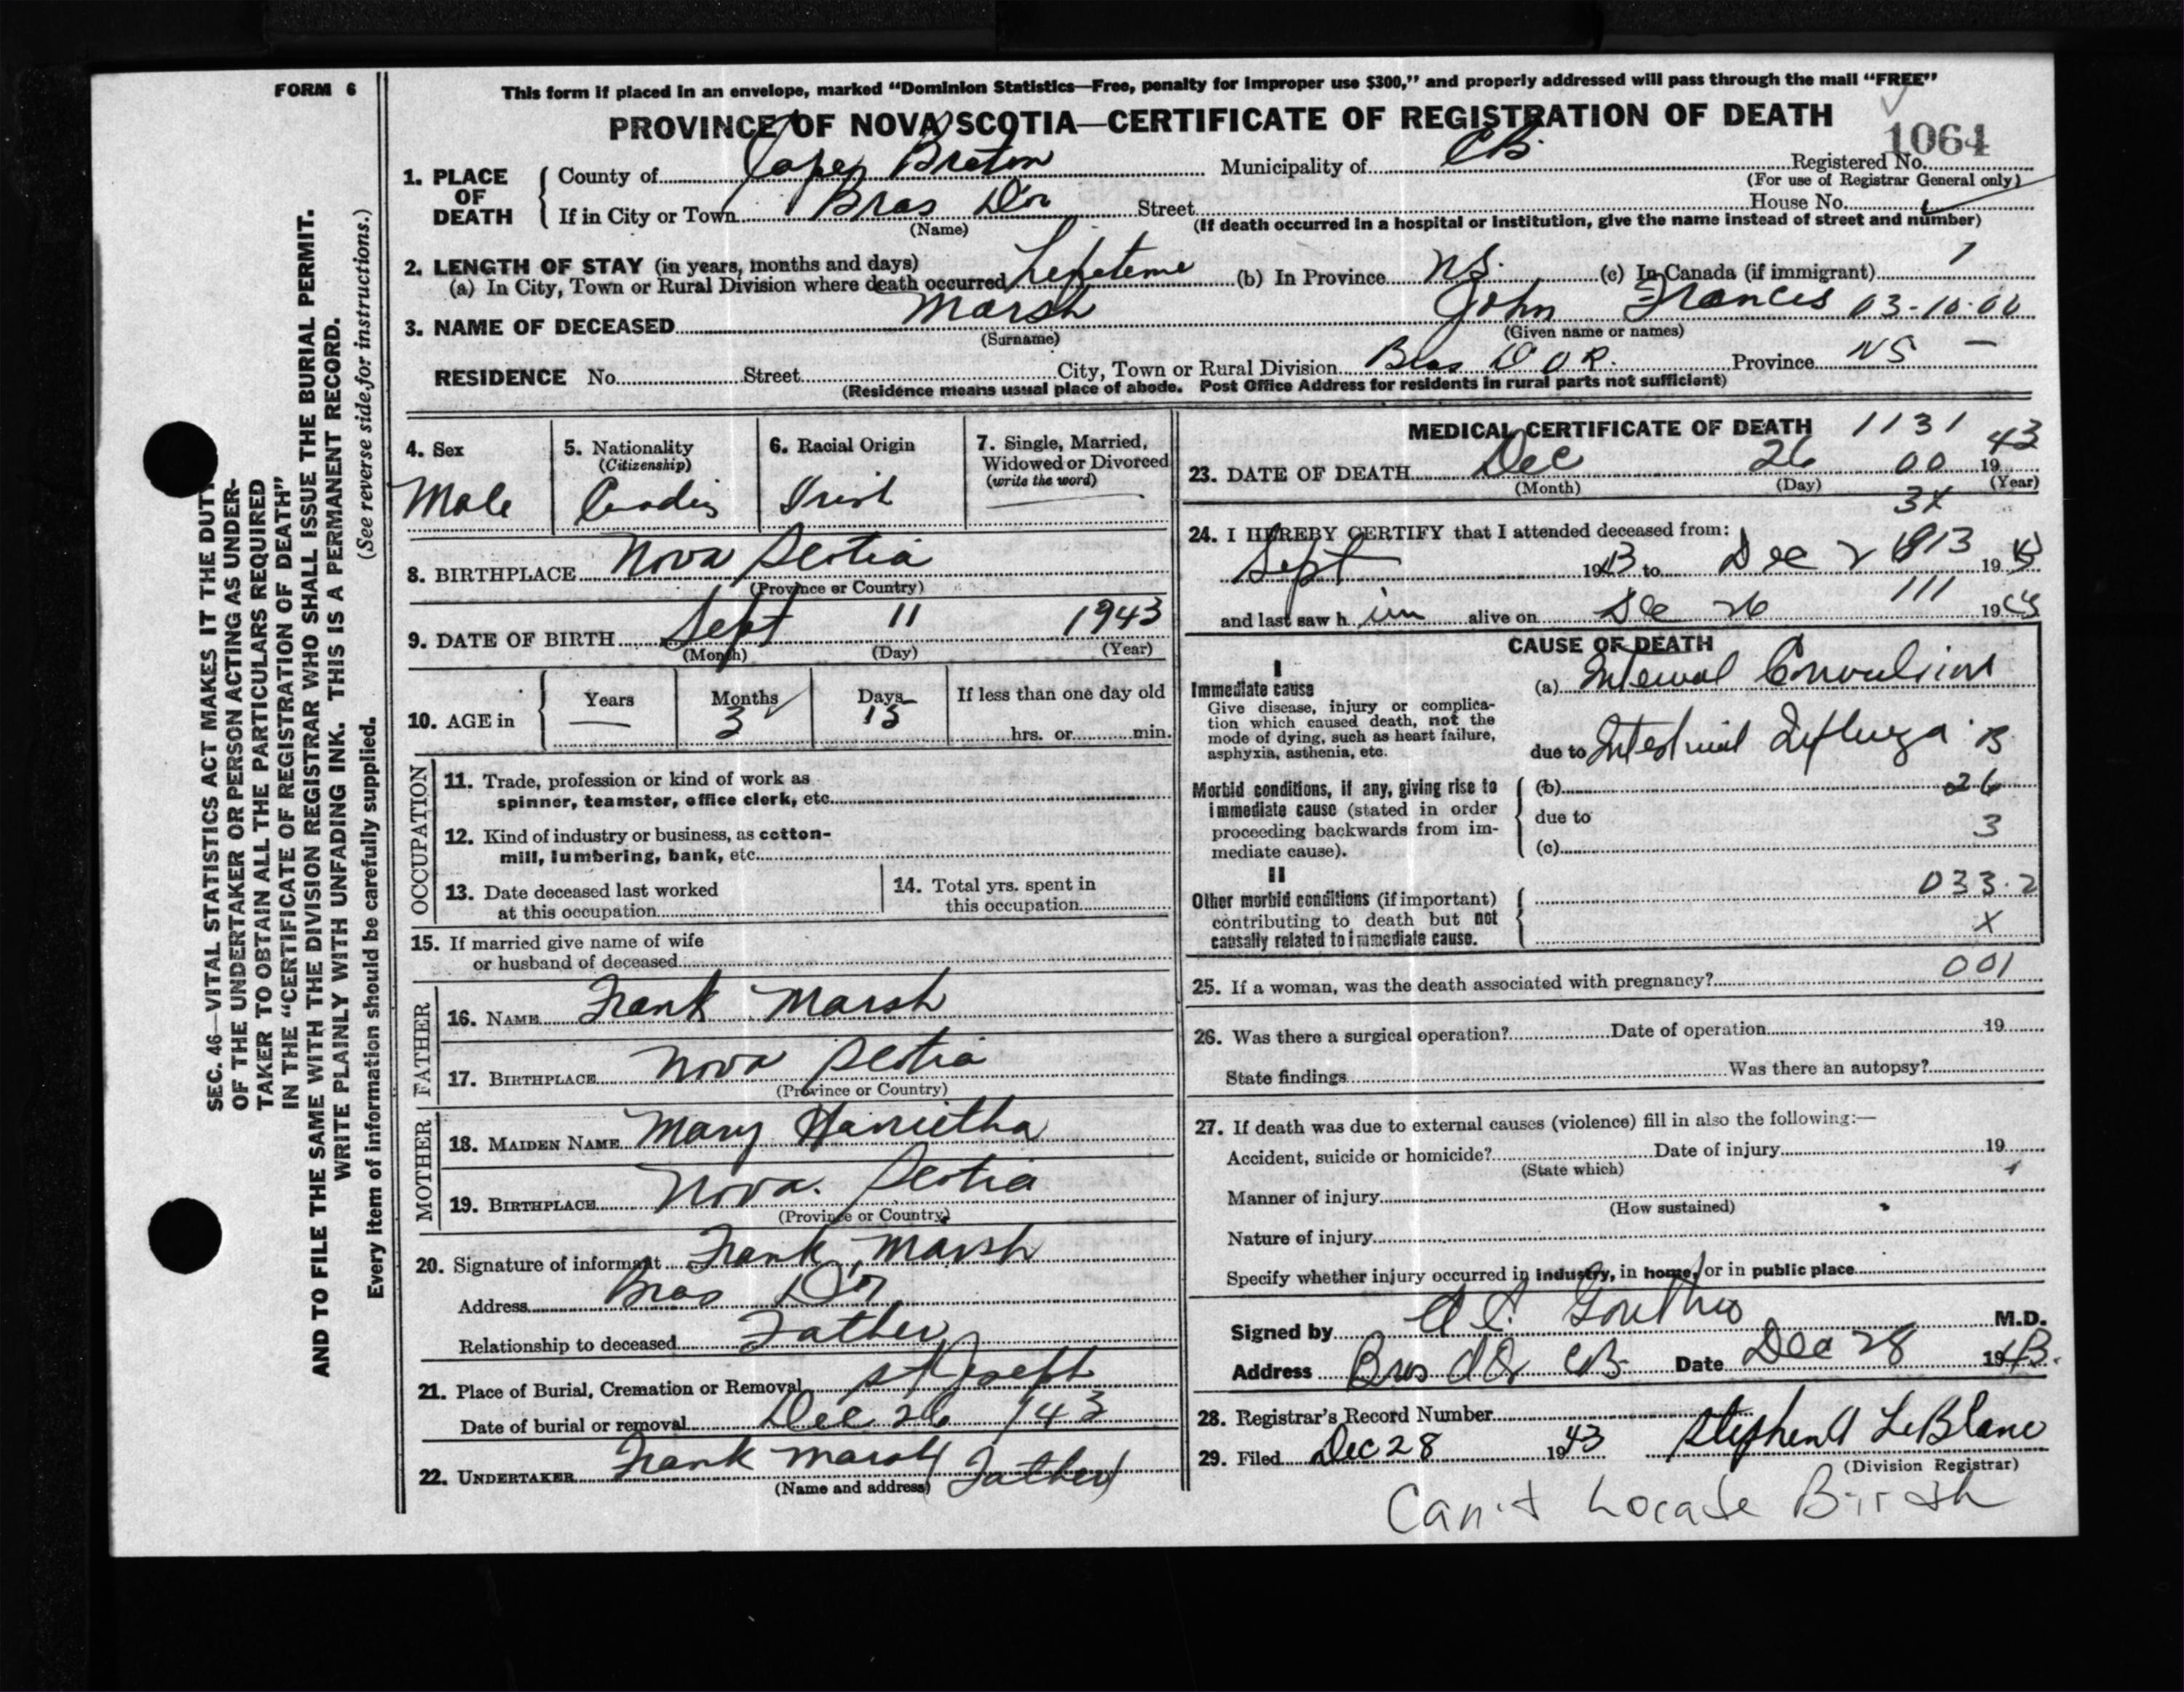 FORM 6
This form if placed in an envelope, marked "Dominion Statistics—Free, penalty for improper use $300," and properly addressed will pass through the mail "FREE"
PROVINCE OF NOVA SCOTIA—CERTIFICATE OF REGISTRATION OF DEATH
1064
1. PLACE OF DEATH
County of Cape Breton Municipality of CB. Registered No.
(For use of Registrar General only)
If in City or Town Bras D'or Street House No.
(Name) (If death occurred in a hospital or institution, give the name instead of street and number)
2. LENGTH OF STAY (in years, months and days)
(a) In City, Town or Rural Division where death occurred Lifetime (b) In Province NS. (c) In Canada (if immigrant) 1
3. NAME OF DECEASED Marsh John Frances 03-10-00
(Surname) (Given name or names)
RESIDENCE No. Street City, Town or Rural Division Bras D'OR. Province NS —
(Residence means usual place of abode. Post Office Address for residents in rural parts not sufficient)
4. Sex
Male
5. Nationality
(Citizenship)
6. Racial Origin
Irish
7. Single, Married, Widowed or Divorced
(write the word)
—
8. BIRTHPLACE Nova Scotia
(Province or Country)
9. DATE OF BIRTH Sept 11 1943
(Month) (Day) (Year)
10. AGE in
Years —
Months 3
Days 15
If less than one day old
hrs. or min.
OCCUPATION
11. Trade, profession or kind of work as
spinner, teamster, office clerk, etc.
12. Kind of industry or business, as cotton-
mill, lumbering, bank, etc.
13. Date deceased last worked
at this occupation
14. Total yrs. spent in
this occupation
15. If married give name of wife
or husband of deceased
FATHER
16. NAME Frank Marsh
17. BIRTHPLACE Nova Scotia
(Province or Country)
MOTHER
18. MAIDEN NAME Mary Harrietha
19. BIRTHPLACE Nova. Scotia
(Province or Country)
20. Signature of informant Frank Marsh
Address Bras D'or
Relationship to deceased Father
21. Place of Burial, Cremation or Removal St Joseph
Date of burial or removal Dec 26 /43
22. UNDERTAKER Frank Marsh (Father)
(Name and address)
MEDICAL CERTIFICATE OF DEATH 1131
23. DATE OF DEATH Dec 26 00 1943
(Month) (Day) (Year)
3X
24. I HEREBY CERTIFY that I attended deceased from:
Sept 1943 to Dec 2 19
and last saw him alive on Dec 26 111 19
CAUSE OF DEATH
I
Immediate cause
Give disease, injury or complica-
tion which caused death, not the
mode of dying, such as heart failure,
asphyxia, asthenia, etc.
(a) Internal Convulsions
due to Intestinal B
Morbid conditions, if any, giving rise to
immediate cause (stated in order
proceeding backwards from im-
mediate cause).
(b) 26
due to
3
(c)
II
Other morbid conditions (if important)
contributing to death but not
causally related to immediate cause.
033.2
X
001
25. If a woman, was the death associated with pregnancy?
26. Was there a surgical operation? Date of operation 19
State findings Was there an autopsy?
27. If death was due to external causes (violence) fill in also the following:—
Accident, suicide or homicide? Date of injury 19
(State which)
Manner of injury
(How sustained)
Nature of injury
Specify whether injury occurred in industry, in home, or in public place
Signed by M.D.
Address Bras d'Or CB. Date Dec 28 1943.
28. Registrar's Record Number
29. Filed Dec 28 1943 Stephen A LeBlanc
(Division Registrar)
Can't Locate Birth
SEC. 46—VITAL STATISTICS ACT MAKES IT THE DUTY
OF THE UNDERTAKER OR PERSON ACTING AS UNDER-
TAKER TO OBTAIN ALL THE PARTICULARS REQUIRED
IN THE "CERTIFICATE OF REGISTRATION OF DEATH"
AND TO FILE THE SAME WITH THE DIVISION REGISTRAR WHO SHALL ISSUE THE BURIAL PERMIT.
WRITE PLAINLY WITH UNFADING INK. THIS IS A PERMANENT RECORD.
(See reverse side for instructions.)
Every item of information should be carefully supplied.